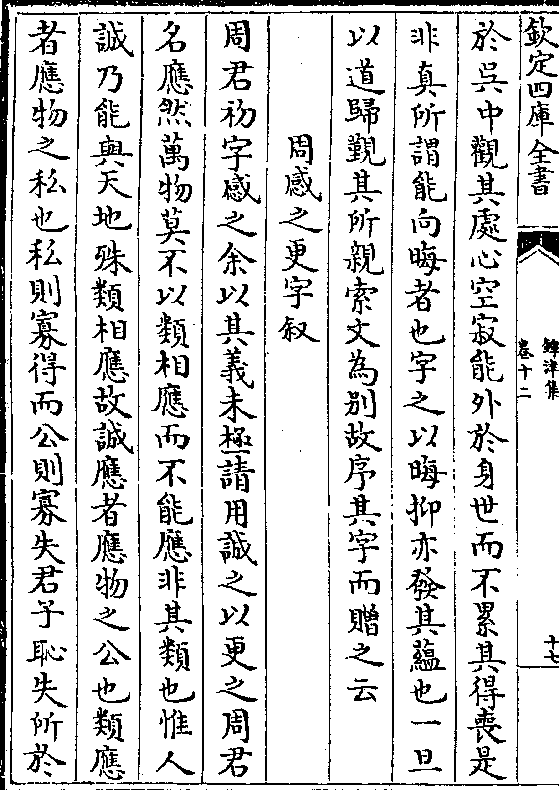 欽定四庫全書
鐔津集
卷十二
十七
於吳中觀其處心空寂能外於身世而不累其得喪是
非真所謂能向晦者也字之以晦抑亦發其蘊也一旦
以道歸覲其所親索文為別故序其字而贈之云
周感之更字叙
周君初字感之余以其義未極請用誠之以更之周君
名應然萬物莫不以類相應而不能應非其類也惟人
誠乃能與天地殊類相應故誠應者應物之公也類應
者應物之私也私則寡得而公則寡失君子恥失所於